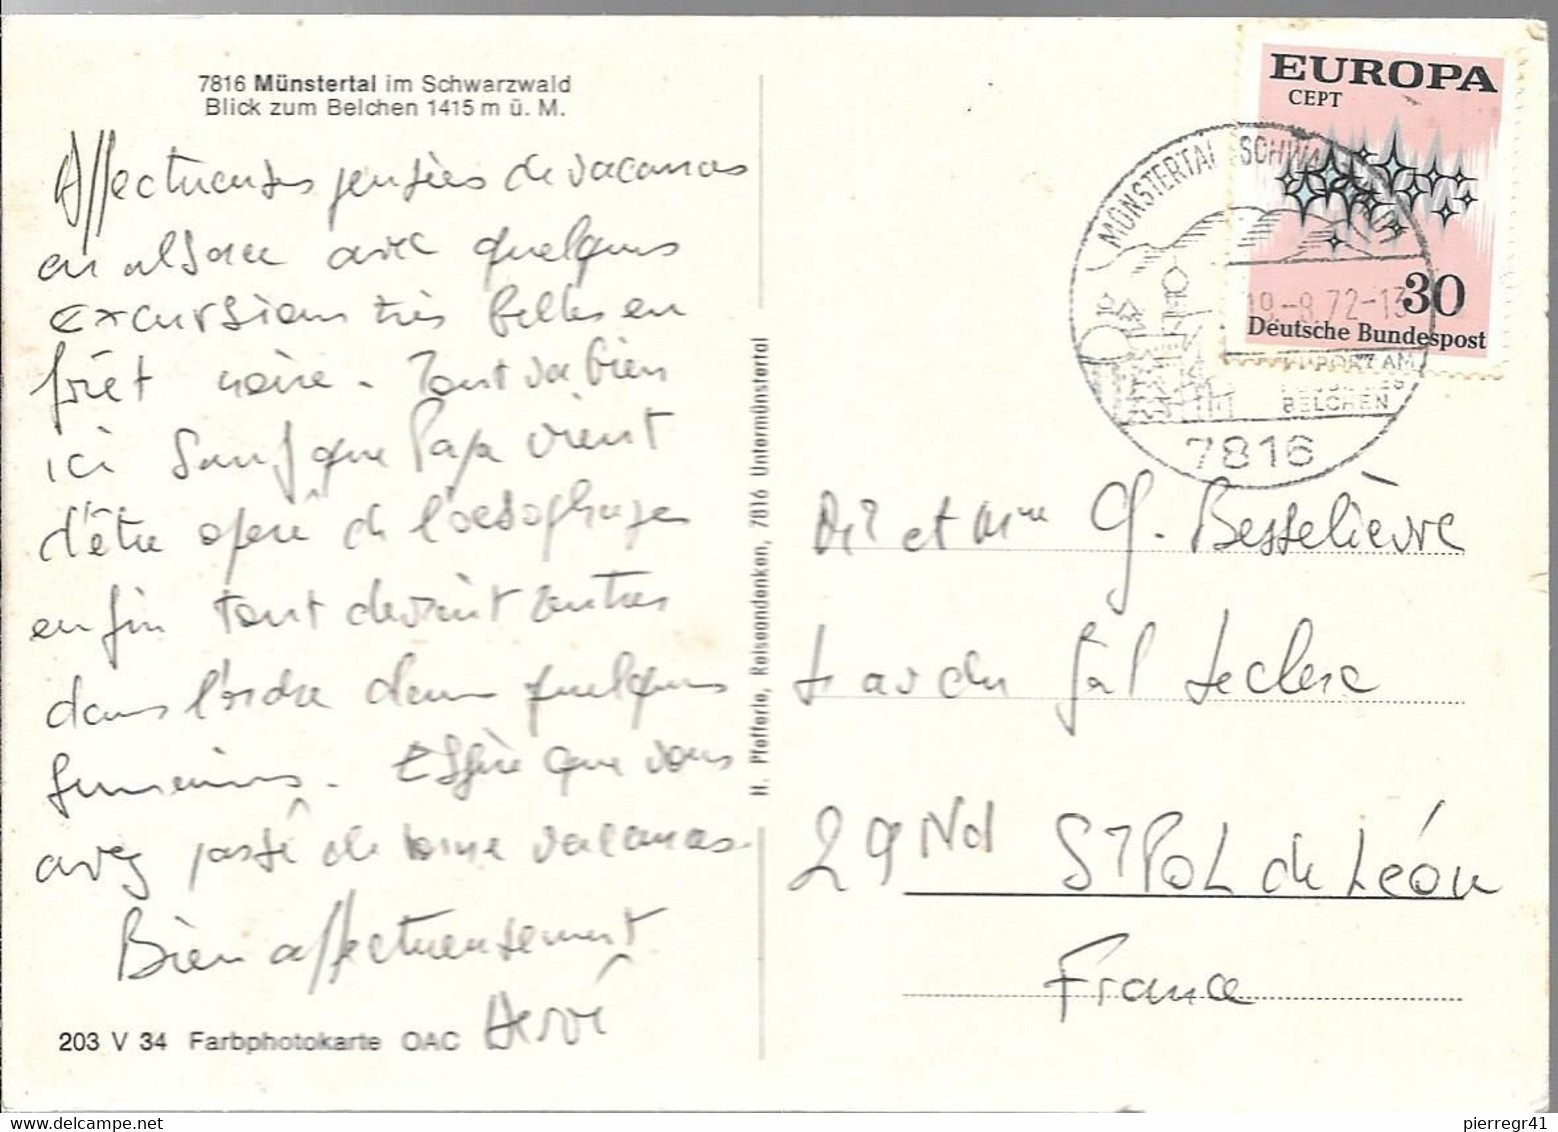 7816 Münstertal im Schwarzwald
Blick zum Belchen 1415 m ü. M.
Affectueuses pensées de vacances
en alsace avec quelques
excursions très belles en
forêt noire - Tout va bien
ici sauf que Papa vient
d'être opéré de l'oesophage
enfin tout devrait rentrer
dans l'ordre dans quelques
semaines. Espère que vous
avez passé de bonnes vacances.
Bien affectueusement
Hervé
203 V 34 Farbphotokarte OAC
H. Pfefferle, Reiseandenken, 7816 Untermünstertal
EUROPA
CEPT
30
Deutsche Bundespost
MÜNSTERTAL SCHWARZWALD
-8.72-13
AM
BELCHEN
7816
Mr et Mme G. Besselièvre
av du Gal Leclerc
29 Nd St Pol de Léon
France
delcampe.net
pierregr41